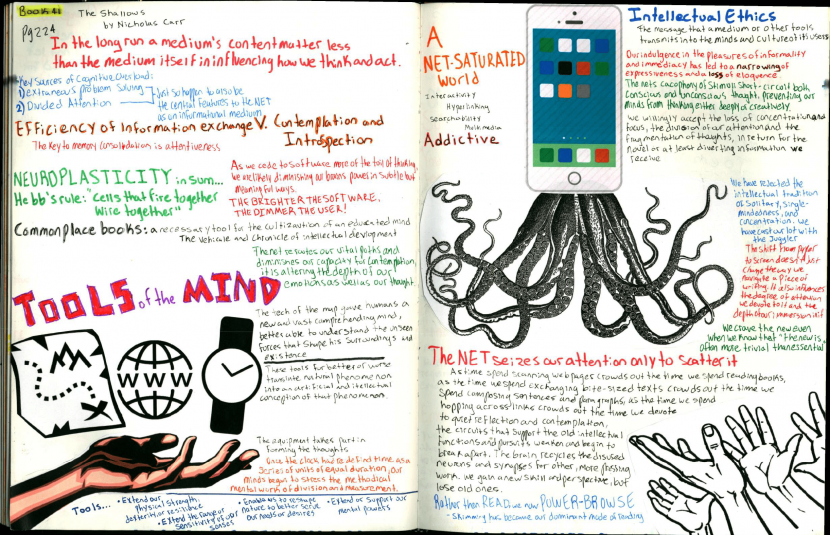 Book 41
The Shallows
by Nicholas Carr
Pg 224
In the long run a medium's content matter less
than the medium itself in influencing how we think and act.
Key Sources of Cognitive Overload:
1) extraneous Problem Solving
2) Divided Attention
Just so happen to also be
the central features to the NET
as an informational medium
Efficiency of Information exchange V. Contemplation and
Introspection
The Key to memory consolidation is attentiveness
NEUROPLASTICITY in sum...
Hebb's rule: "Cells that fire together
wire together"
As we cede to software more of the toil of thinking
we are likely diminishing our brains power in subtle but
meaningful ways.
THE BRIGHTER THE SOFTWARE,
THE DIMMER THE USER!
Commonplace books: a necessary tool for the cultivation of an educated mind
The vehicle and chronicle of intellectual development
The net reroutes our vital paths and
diminishes our capacity for contemplation,
it is altering the depth of our
emotions as well as our thought
TOOLS of the MIND
The tech of the map gave humans a
new and vast comprehending mind,
better able to understand the unseen
forces that shape his surroundings and
existence
These tools for better or worse
translate natural phenomenon
into an artificial and intellectual
conception of that phenomenon.
WWW
The equipment takes part in
forming the thoughts
Once the clock has redefined time as a
series of units of equal duration, our
minds begin to stress the methodical
mental work of division and measurement.
Tools...
• Extend our
physical strength,
dexterity, or resilience
• Extend the range or
sensitivity of our
senses
• Enable us to reshape
nature to better serve
our needs or desires
• Extend or support our
mental powers
A
NET-SATURATED
World
Interactivity
Hyperlinking
Searchability
Multimedia
Addictive
Intellectual Ethics
The message that a medium or other tools
transmits into the minds and culture of its users
Our indulgence in the pleasures of informality
and immediacy has led to a narrowing of
expressiveness and a loss of eloquence
The nets cacophony of stimuli short-circuit both
conscious and unconscious thought, preventing our
minds from thinking either deeply or creatively.
We willingly accept the loss of concentration and
focus, the division of our attention and the
fragmentation of thoughts, in return for the
novel or at least diverting information we
receive
We have rejected the
intellectual tradition
of solitary, single-
mindedness, and
concentration. we
have cast our lot with
the Juggler
The shift from paper
to screen doesn't just
change the way we
navigate a piece of
writing. It also influences
the degree of attention
we devote to it and the
depth of our immersion in it
We crave the new even
when we know that "the new is
often more trivial than essential
The NET seizes our attention only to scatter it
As time spend scanning web pages crowds out the time we spend reading books,
as the time we spend exchanging bite-sized texts crowds out the time we
spend composing sentences and paragraphs, as the time we spend
hopping across links crowds out the time we devote
to quiet reflection and contemplation,
the circuits that support the old intellectual
functions and pursuits weaken and begin to
break apart. The brain recycles the disused
neurons and synapses for other, more pressing
work. we gain new skill and perspective, but
lose old ones.
Rather than READ, we now POWER-BROWSE
- Skimming has become our dominant mode of reading